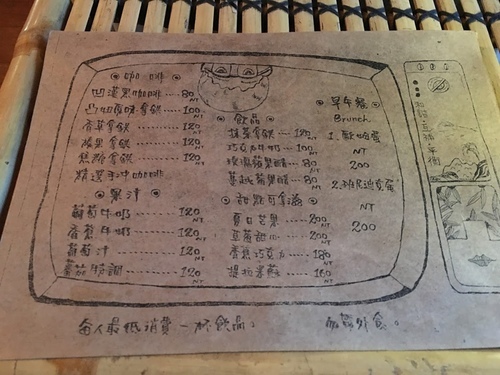 咖啡
凹漢黑咖啡......80 NT
凸咖原味拿鐵......100 NT
香草拿鐵......120 NT
榛果拿鐵......120 NT
焦糖拿鐵......120 NT
精選手沖咖啡
果汁
葡萄牛奶......120 NT
香蕉牛奶......120 NT
葡萄汁......120 NT
蕃茄特調......120 NT
飲品
抹茶拿鐵...120 NT
巧克力牛奶...100 NT
玫瑰蘋果醋...80 NT
蔓越莓果醋...80 NT
甜點可拿滋
夏日芒果......200 NT
草莓甜心......200 NT
香蕉巧克力......180 NT
提拉米蘇......160 NT
早午餐
Brunch.
1.
NT
200
2.
NT
200
每人最低消費一杯飲品。
勿帶外食。